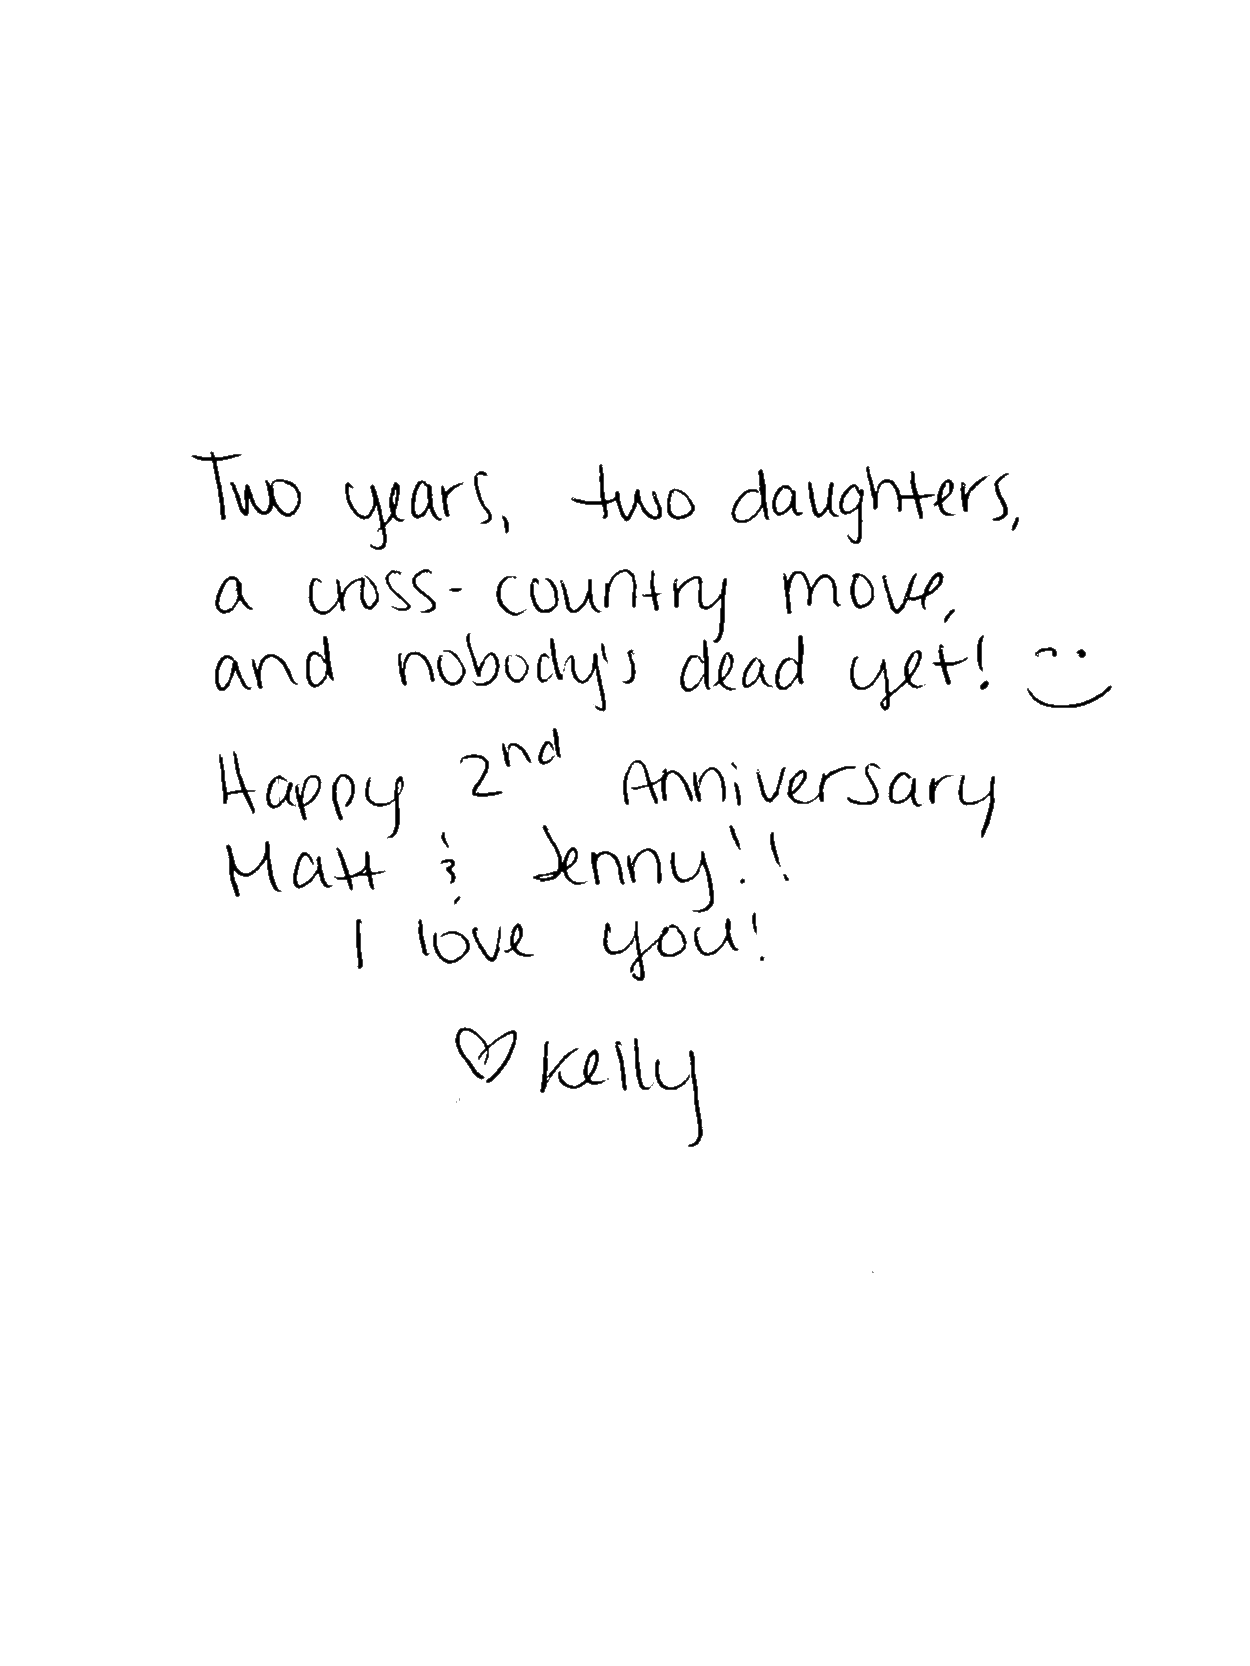 Two years, two daughters,
a cross-country move,
and nobody's dead yet! :)
Happy 2nd Anniversary
Matt & Jenny!!
I love you!
♡ Kelly